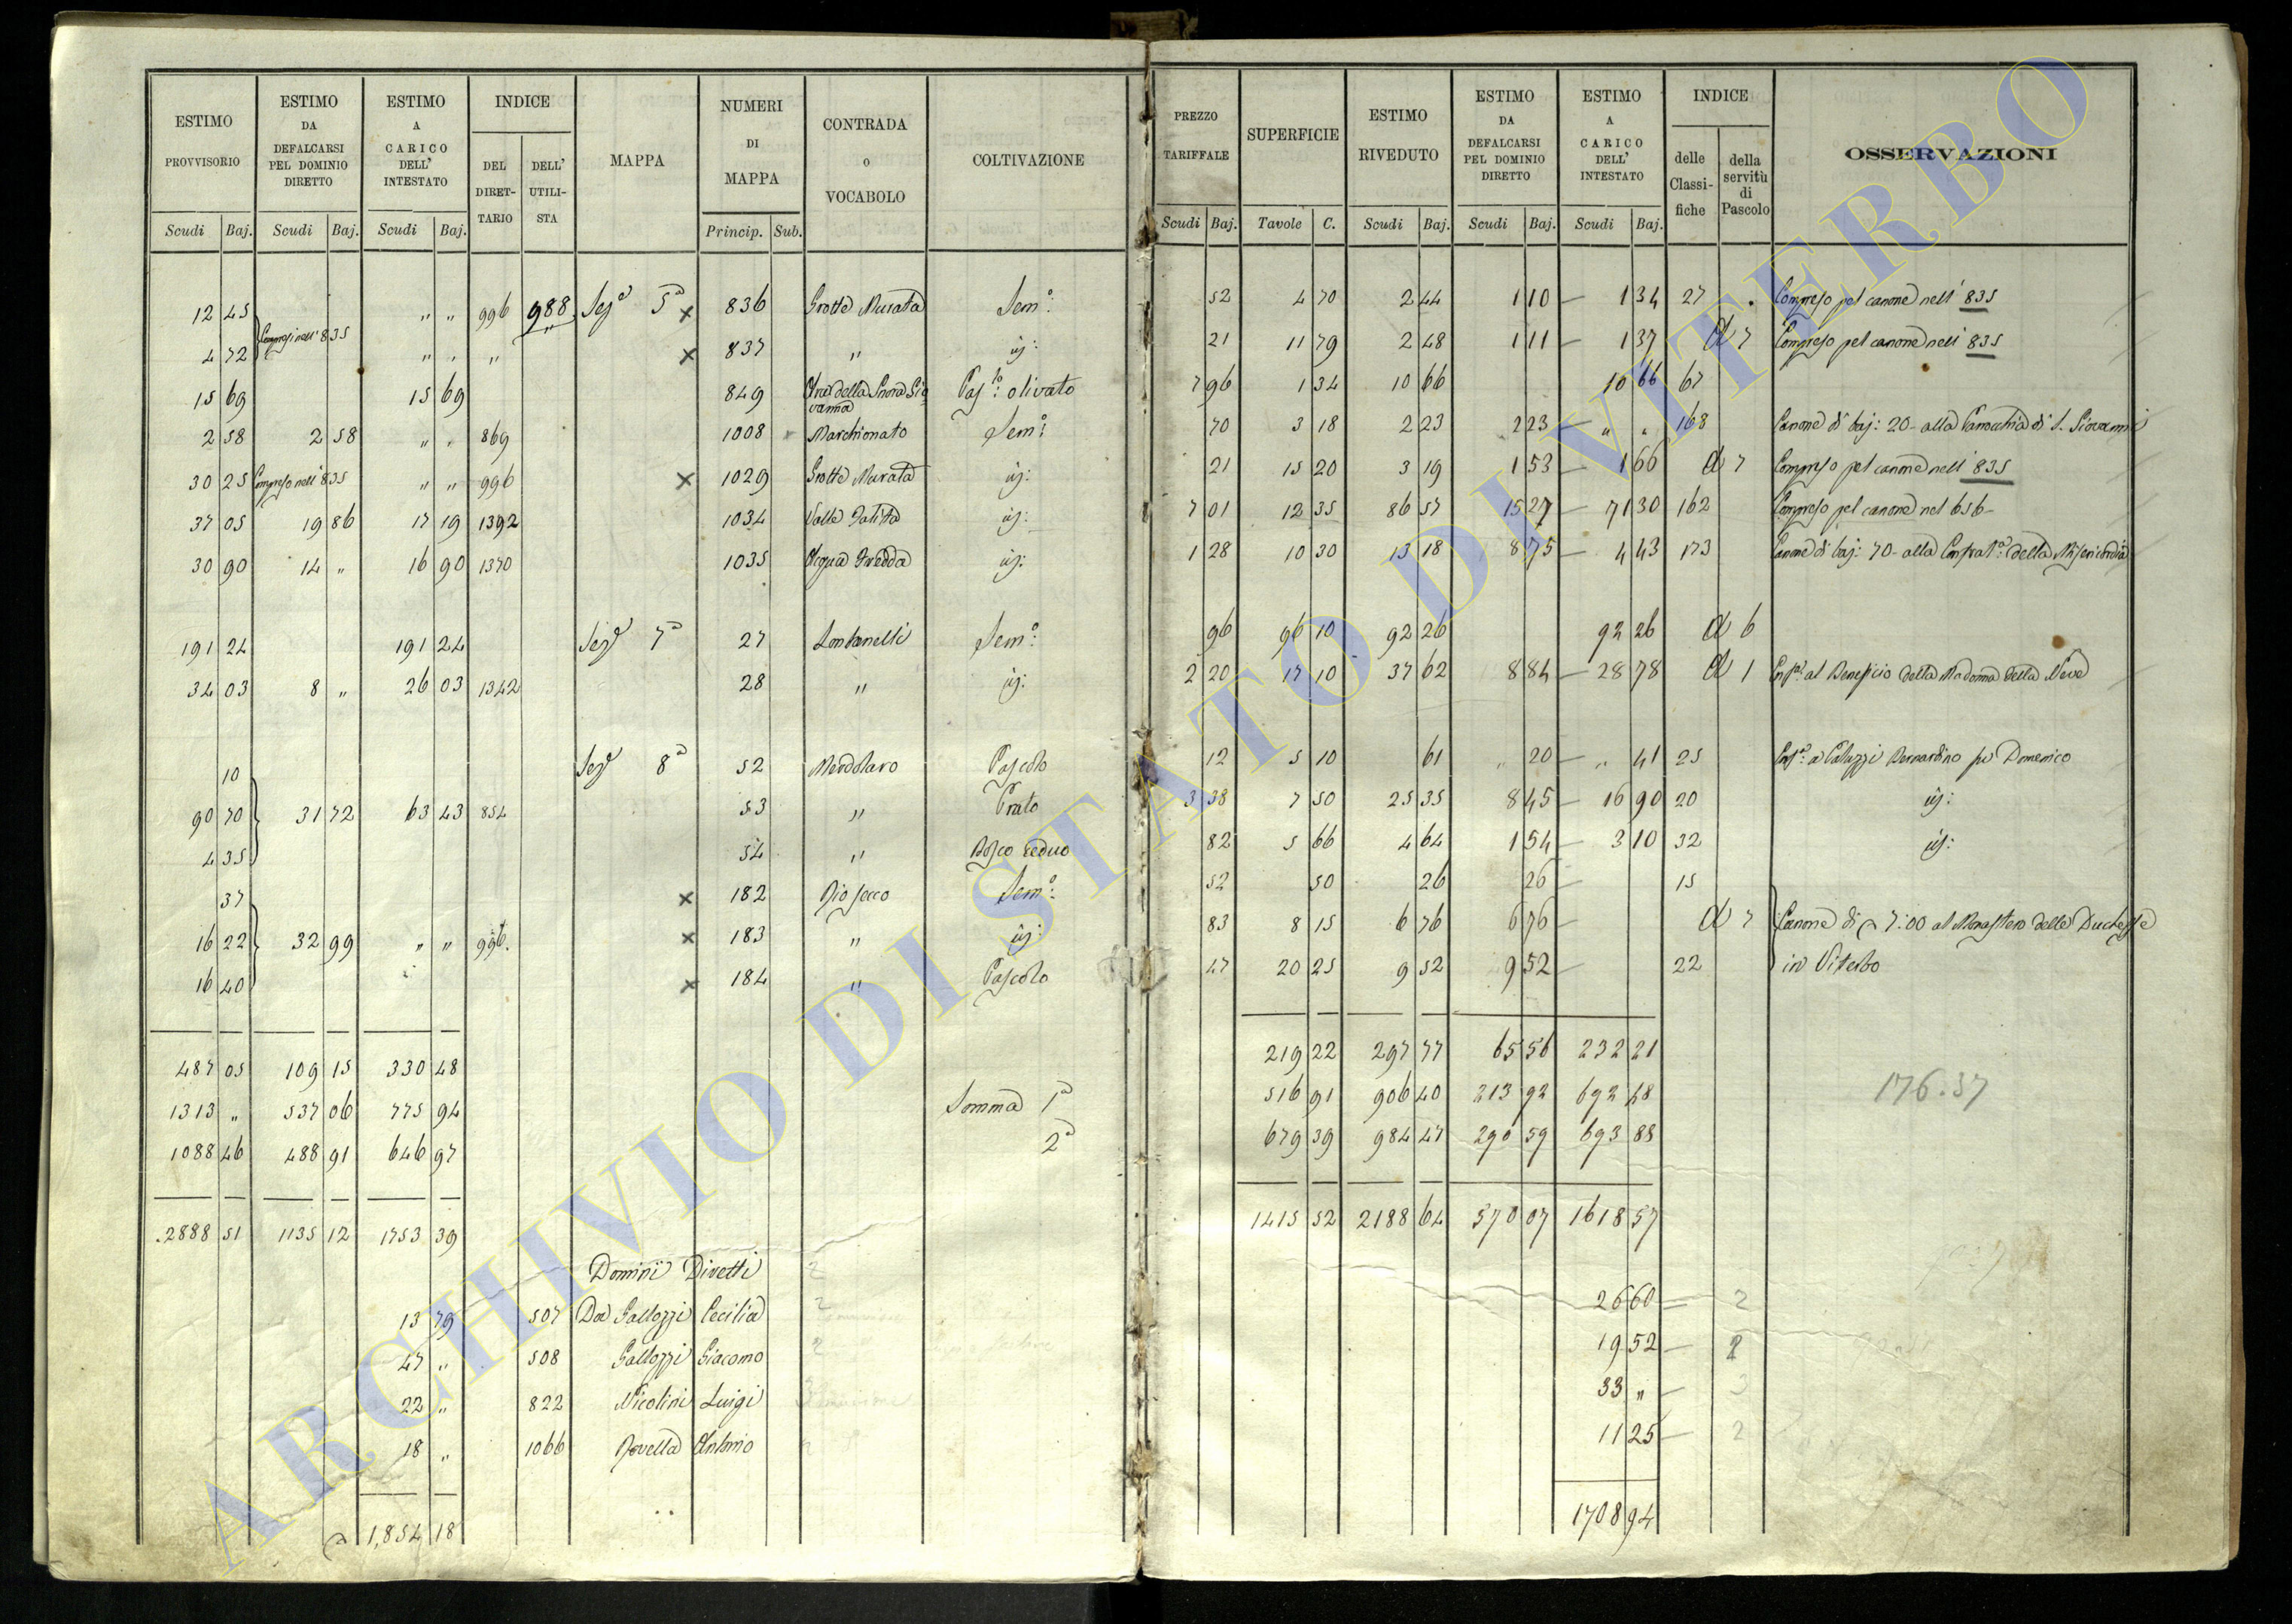 ESTIMO PROVVISORIO | ESTIMO DA DEFALCARSI PEL DOMINIO DIRETTO | ESTIMO A CARICO DELL' INTESTATO | INDICE DEL DIRETTARIO | DELL' UTILISTA | MAPPA | NUMERI DI MAPPA | CONTRADA o VOCABOLO | COLTIVAZIONE | PREZZO TARIFFALE | SUPERFICIE | ESTIMO RIVEDUTO | ESTIMO DA DEFALCARSI PEL DOMINIO DIRETTO | ESTIMO A CARICO DELL' INTESTATO | INDICE delle Classifiche | della servitù di Pascolo | OSSERVAZIONI
Scudi Baj. | Scudi Baj. | Scudi Baj. | Princip. Sub. | Scudi Baj. | Tavole C. | Scudi Baj. | Scudi Baj. | Scudi Baj.
12 45 | Compresi nell' 835 | " " | 996 | 988 | Sez.e 5a | x 836 | Grotte Murata | Sem.o | 52 | 4 70 | 2 44 | 1 10 — | 1 34 | 27 | Compreso pel canone nell' 835
4 72 | " " | " | x 837 | " | id: | 21 | 11 79 | 2 48 | 1 11 — | 1 37 | a 7 | Compreso pel canone nell' 835
15 69 | 15 69 | 849 | della Giovanna | Pas.lo olivato | 7 96 | 1 34 | 10 66 | 10 66 | 67
2 58 | 2 58 | " " | 869 | 1008 | Marchionato | Sem.o | 70 | 3 18 | 2 23 | 2 23 — | " " | 168 | Canone di baj: 20 - alla Parrocchia di S. Giovanni
30 25 | Compreso nell' 835 | " " | 996 | x 1029 | Grotte Murata | id: | 21 | 15 20 | 3 19 | 1 53 — | 1 66 | a 7 | Compreso pel canone nell' 835
37 05 | 19 86 | 17 19 | 1392 | 1034 | Valle | id: | 7 01 | 12 35 | 86 57 | 15 27 — | 71 30 | 162 | Compreso pel canone nel 656 -
30 90 | 14 " | 16 90 | 1370 | 1035 | Acqua Fredda | id: | 1 28 | 10 30 | 13 18 | 8 75 — | 4 43 | 173 | Canone di baj: 70 - alla Confrat.a della Misericordia
191 24 | 191 24 | Sez.e 7a | 27 | Lontanelli | Sem.o | 96 | 96 10 | 92 26 | 92 26 | a 6
34 03 | 8 " | 26 03 | 1342 | 28 | " | id: | 2 20 | 17 10 | 37 62 | 8 84 — | 28 78 | a 1 | al Beneficio della Madonna della Neve
10 | Sez.e 8a | 52 | Merdolaro | Pascolo | 12 | 5 10 | 61 | " 20 — | " 41 | 25 | Bernardino fu Domenico
90 70 | 31 72 | 63 43 | 854 | 53 | " | Prato | 3 38 | 7 50 | 25 35 | 8 45 — | 16 90 | 20 | id:
4 35 | 54 | " | Bosco ceduo | 82 | 5 66 | 4 64 | 1 54 — | 3 10 | 32 | id:
37 | x 182 | Rio secco | Sem.o | 52 | 50 | 26 | 26 — | 15
16 22 | 32 99 | " " | 996. | x 183 | " | id: | 83 | 8 15 | 6 76 | 6 76 — | a 7 | Canone di 7:00 al Monastero delle Duchesse
16 40 | x 184 | " | Pascolo | 47 | 20 25 | 9 52 | 9 52 — | 22 | in Viterbo
487 05 | 109 15 | 330 48 | 219 22 | 297 77 | 65 56 | 232 21
1313 " | 537 06 | 775 94 | Somma 1a | 516 91 | 906 40 | 213 92 | 692 48 | 176.37
1088 46 | 488 91 | 646 97 | 2a | 679 39 | 984 47 | 290 59 | 693 88
2888 51 | 1135 12 | 1753 39 | 1415 52 | 2188 64 | 570 07 | 1618 57
Dominii Diretti
13 79 | 507 | Da Gallozzi Cecilia | 26 60 — 2
47 " | 508 | Gallozzi Giacomo | 19 52 — 2
22 " | 822 | Nicolini Luigi | 33 " — 3
18 " | 1066 | Rovella Antonio | 11 25 — 2
1,854 18 | 1708 94
ARCHIVIO DI STATO DI VITERBO